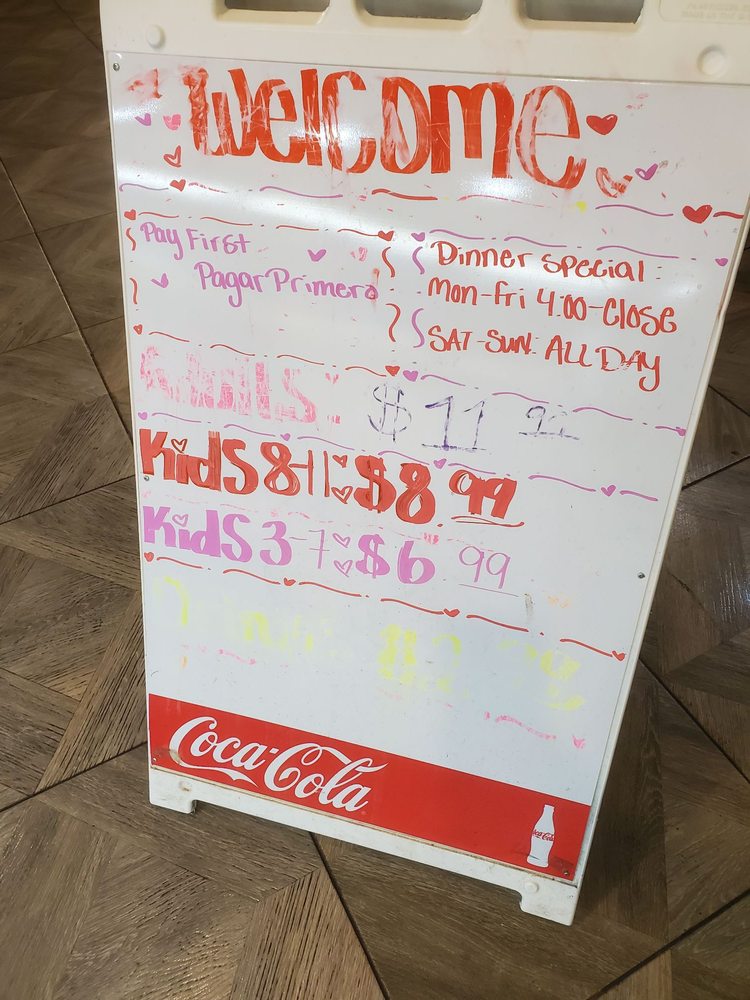 Welcome
Pay First
Pagar Primero
Dinner special:
Mon-Fri 4:00-Close
SAT-SUN: ALL DAY
$11
Kids 8-11: $8.99
Kids 3-7: $6.99
Coca-Cola
Coca-Cola